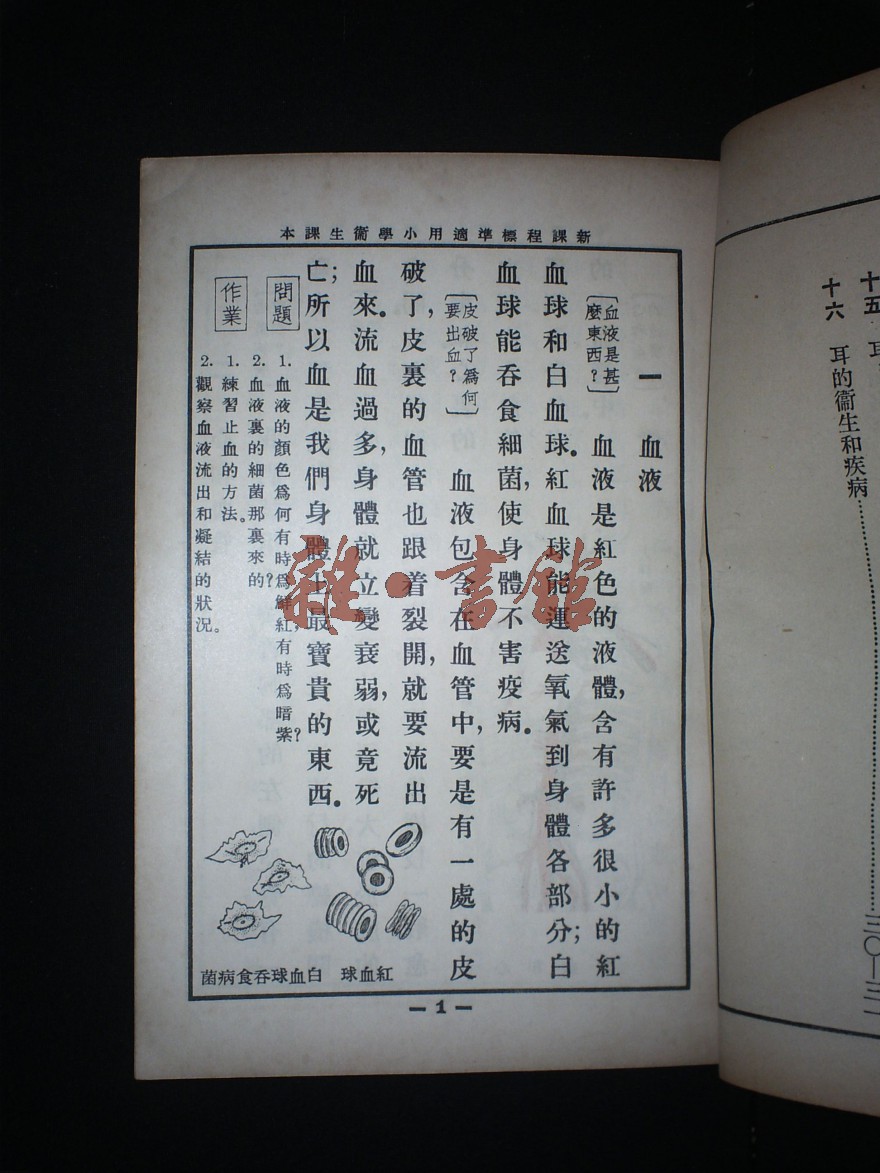 新課程標準適用小學衞生課本
一　血液
〔血液是甚
麼東西？〕
血液是紅色的液體，含有許多很小的紅
血球和白血球。紅血球能運送氧氣到身體各部分；白
血球能吞食細菌，使身體不害疫病。
〔皮破了爲何
要出血？〕
血液包含在血管中，要是有一處的皮
破了，皮裏的血管也跟着裂開，就要流出
血來。流血過多，身體就立變衰弱，或竟死
亡；所以血是我們身體上最寶貴的東西。
問題
1. 血液的顏色爲何有時爲鮮紅，有時爲暗紫？
2. 血液裏的細菌那裏來的？
作業
1. 練習止血的方法。
2. 觀察血液流出和凝結的狀況。
紅血球　白血球吞食病菌
— 1 —
雜·書館
十五　耳
十六　耳的衞生和疾病……三〇—三二